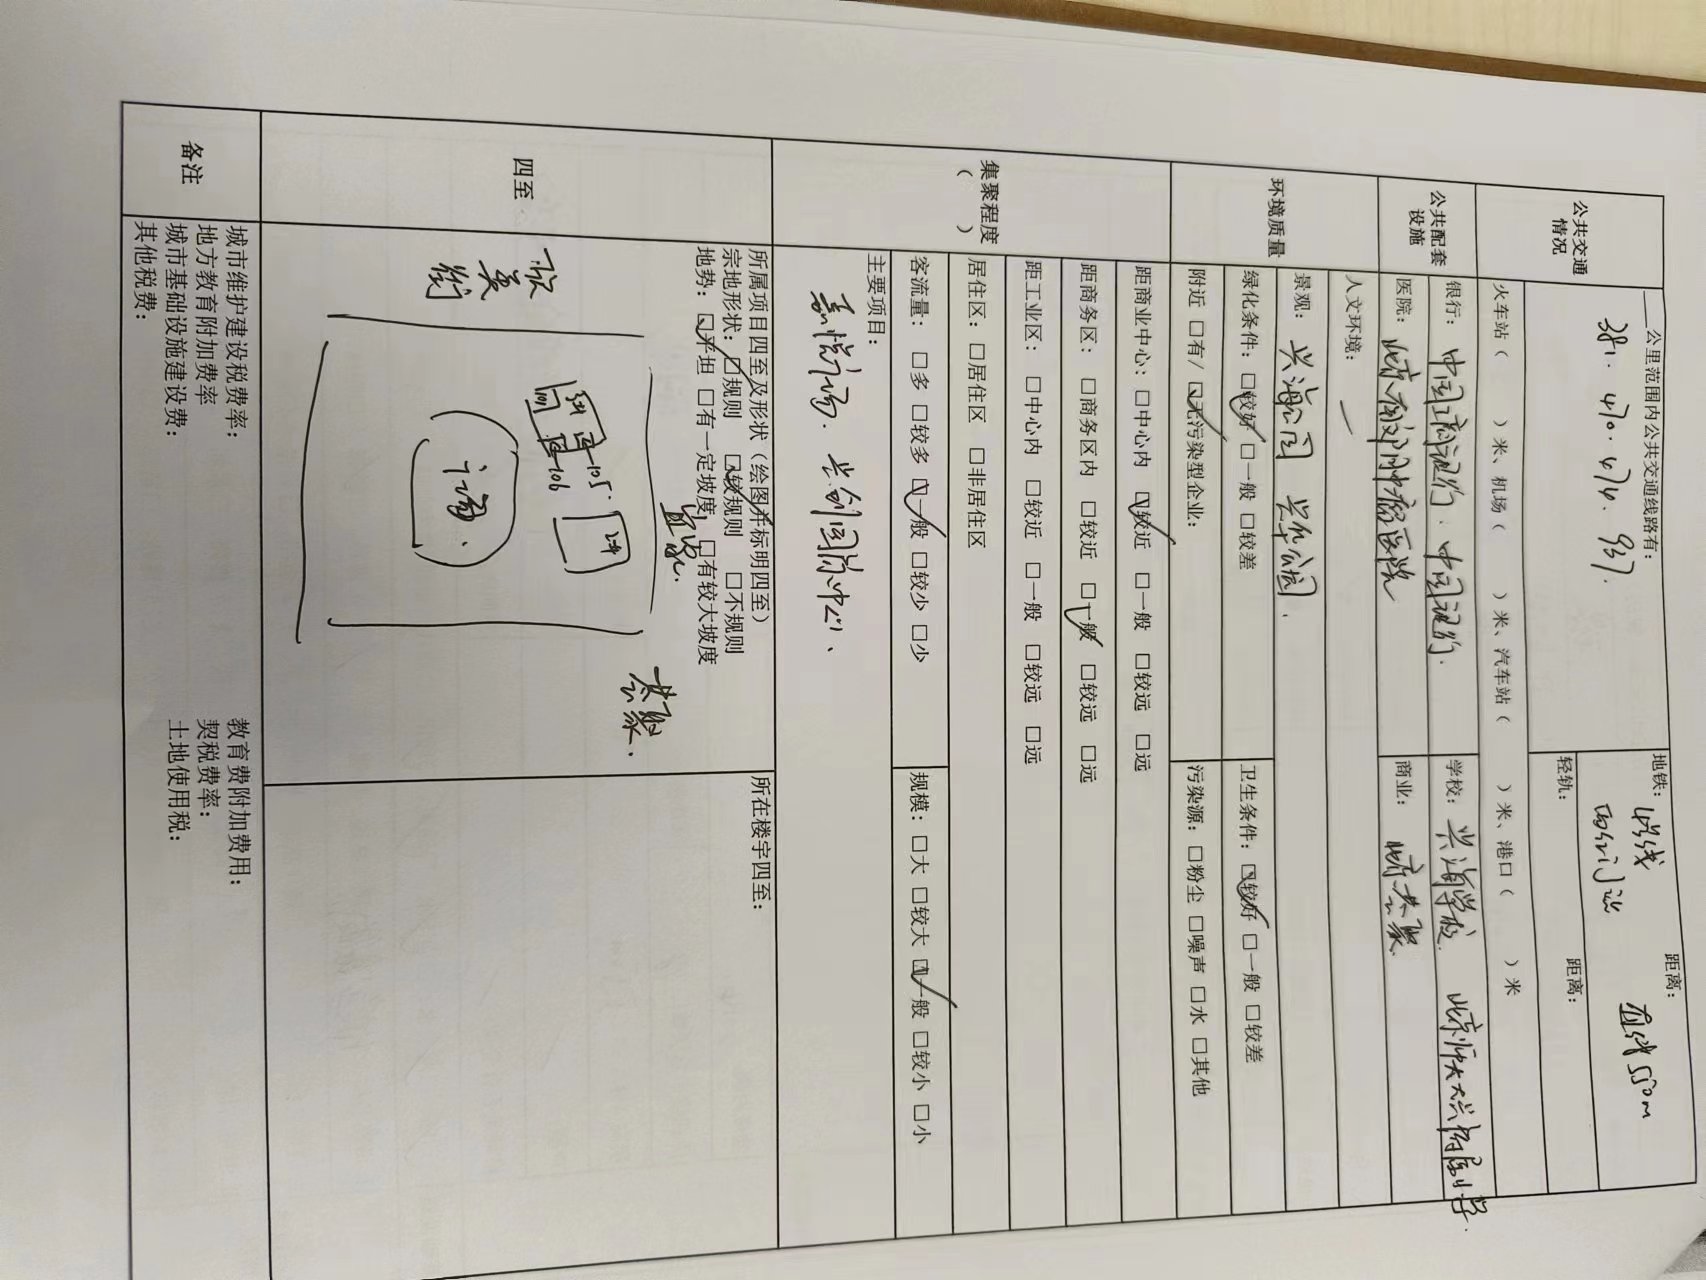 公共交通情况
___公里范围内公共交通线路有：
381. 470. 474. 937.
地铁：
4号线
西红门站
距离：
直线550m
轻轨：
距离：
火车站（ ）米、机场（ ）米、汽车站（ ）米、港口（ ）米
公共配套设施
银行：中国工商银行. 中国银行.
学校：兴海学校 北京师大大兴附属小学.
医院：北京南郊肿瘤医院
商业：北京荟聚
环境质量
人文环境：
景观：兴海公园 兴华公园.
绿化条件：☑较好 □一般 □较差
卫生条件：☑较好 □一般 □较差
附近 □有/ ☑无污染型企业：
污染源：□粉尘 □噪声 □水 □其他
集聚程度
（ ）
距商业中心：□中心内 ☑较近 □一般 □较远 □远
距商务区：□商务区内 □较近 ☑一般 □较远 □远
距工业区：□中心内 □较近 □一般 □较远 □远
居住区：□居住区 □非居住区
客流量：□多 □较多 ☑一般 □较少 □少
规模：□大 □较大 ☑一般 □较小 □小
主要项目：
嘉悦广场. 兴创国际中心、
四至
所属项目四至及形状（绘图并标明四至）
宗地形状：☑规则 ☑较规则 □不规则
地势：☑平坦 □有一定坡度 □有较大坡度
宜家.
荟聚.
欣美街
105.
106
2#
所在楼宇四至：
备注
城市维护建设税费率：
教育费附加费用：
地方教育附加费率
契税费率：
城市基础设施建设费：
土地使用税：
其他税费：